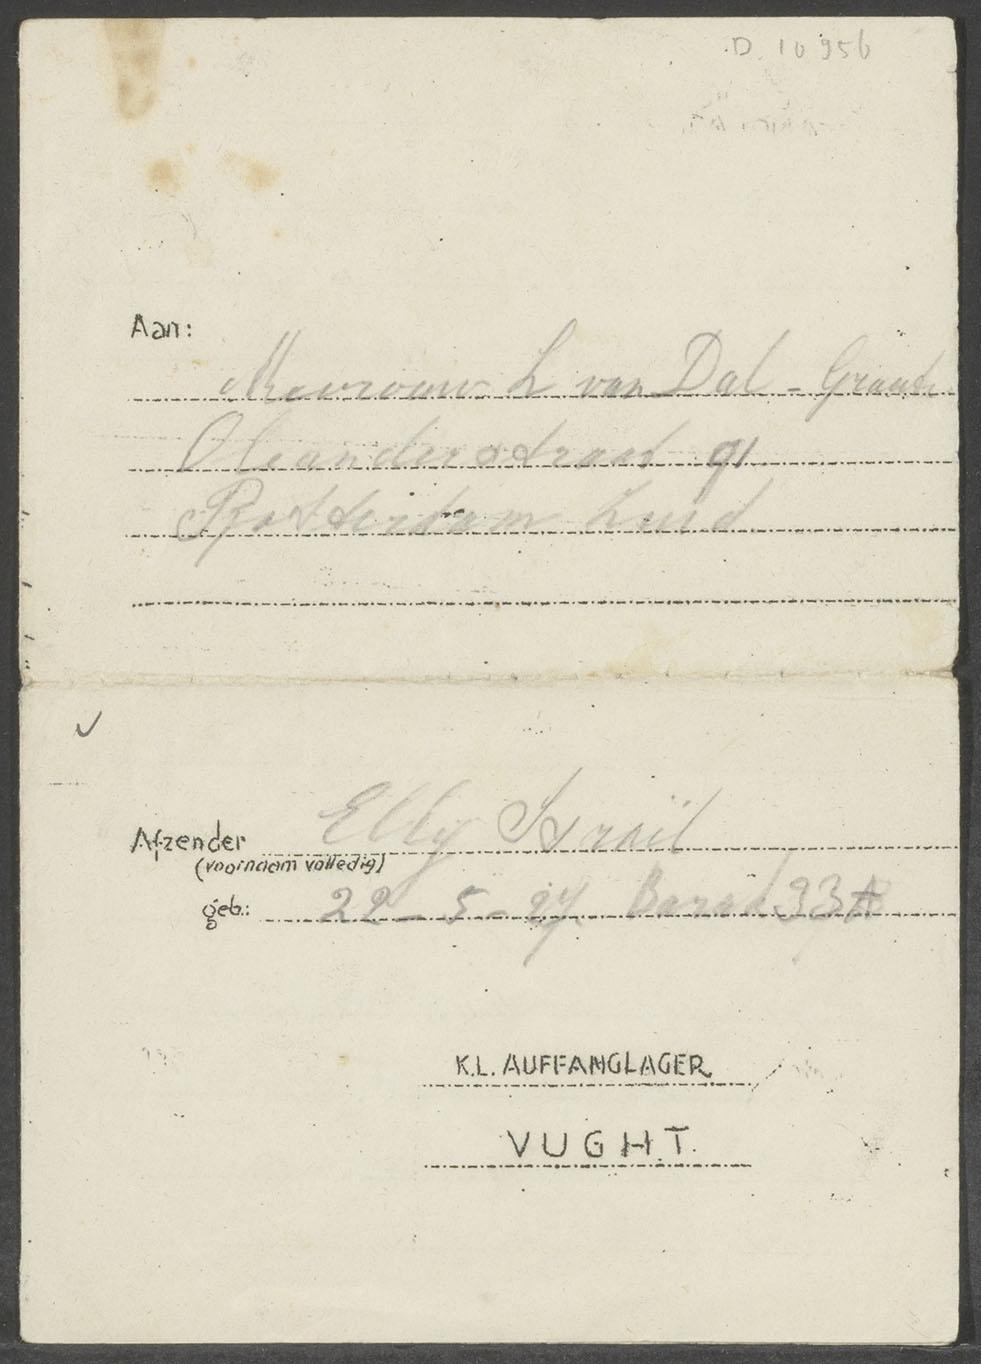 D. 10956
Aan:
Mevrouw L van Dal - Graaté
Oleanderstraat 91
Rotterdam Zuid
Afzender Elly Israïl
(voornaam volledig)
geb.: 22-5-27. Barak 23 A
K.L. AUFFANGLAGER
VUGHT.